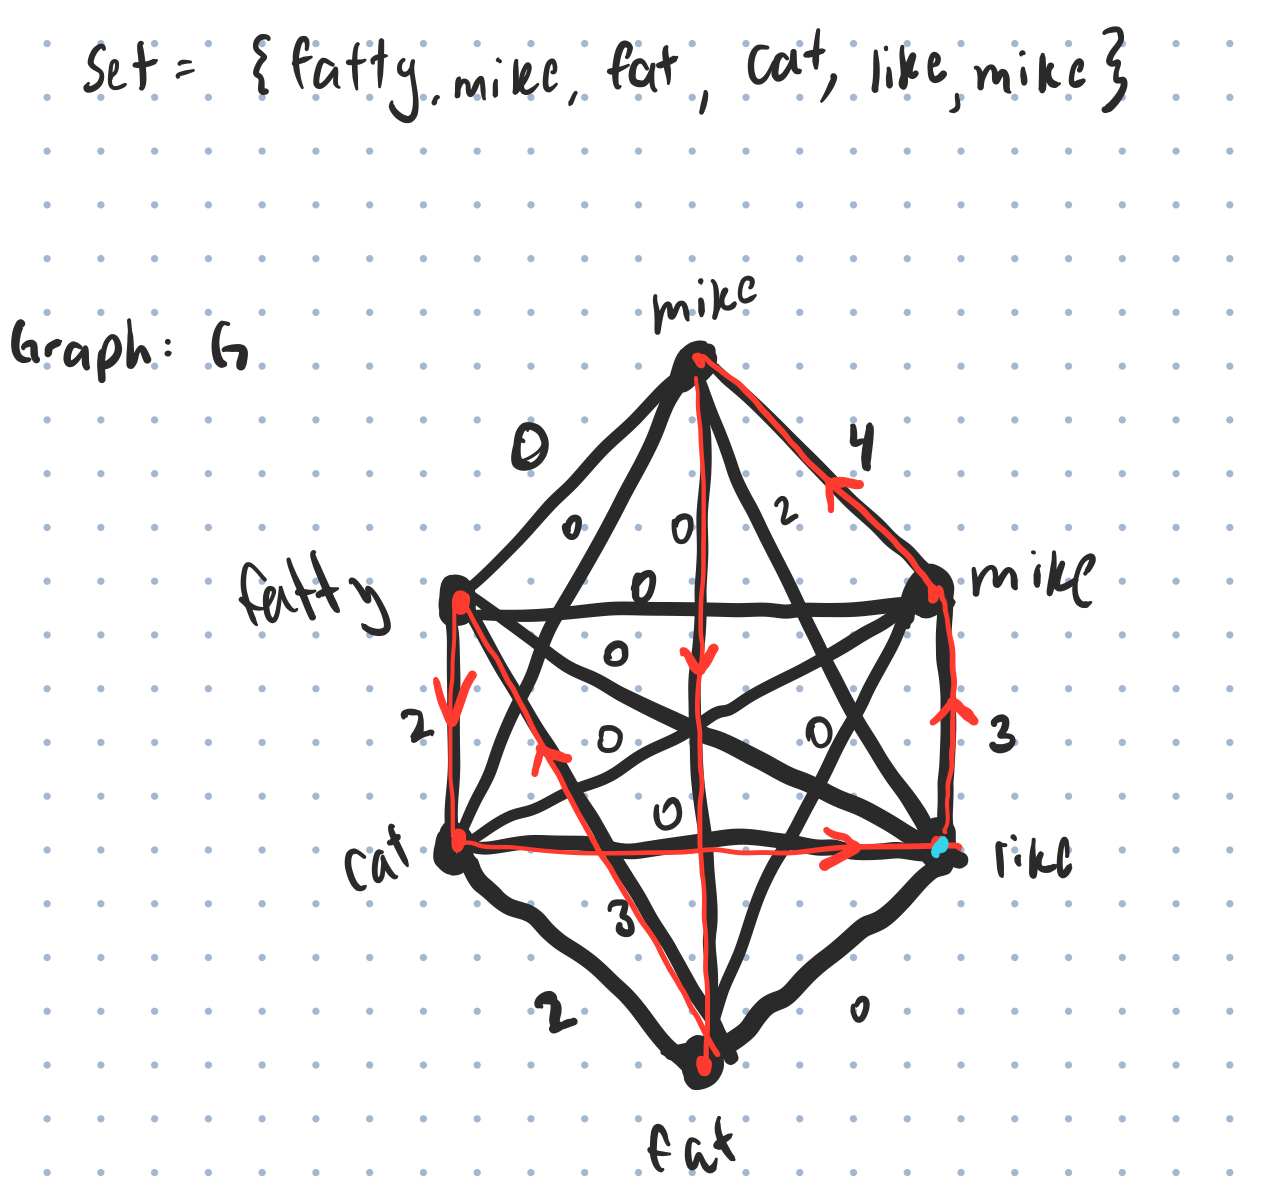 Set = { fatty, mike, fat, cat, like, mike }
mike
Graph: G
0
4
0
0
2
fatty
0
mike
0
2
0
0
3
0
cat
like
3
2
0
fat